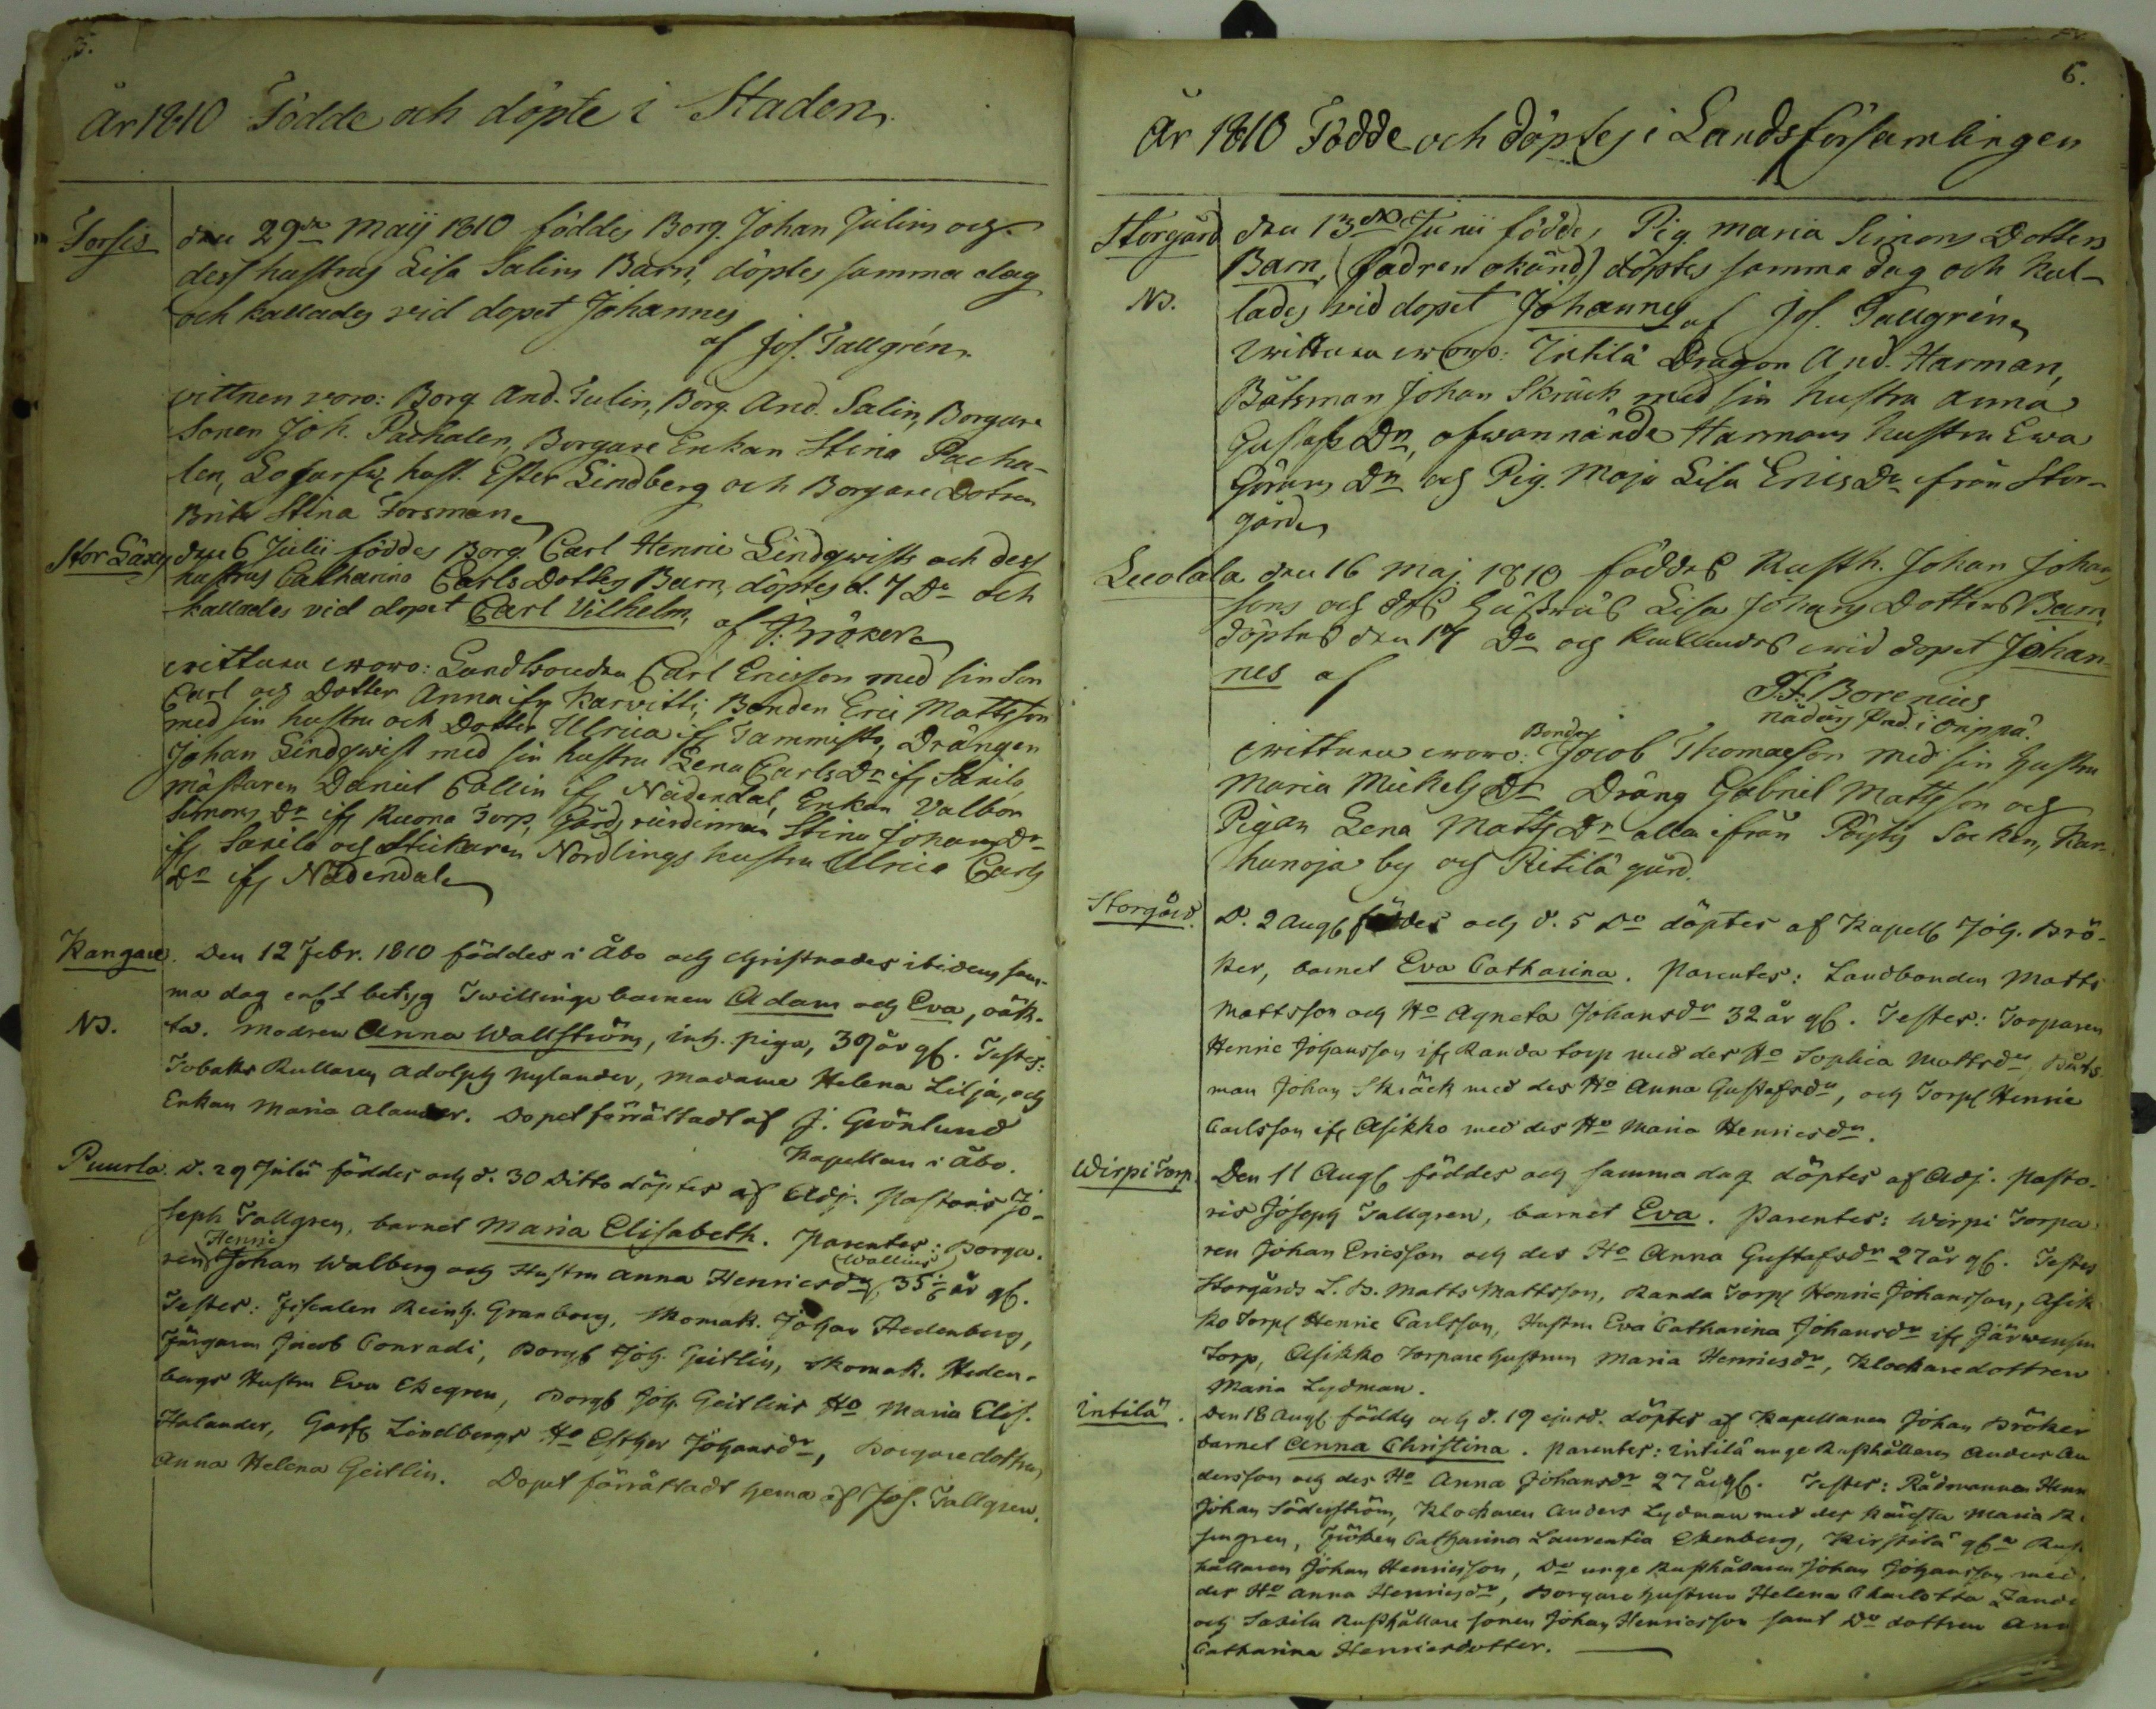 5.
År 1810 Födde och döpte i Staden
Forsis den 29de Maij 1810 föddes Borg. Johan Julins och
dess hustrus Lisa Salins Barn, döptes samma dag
och kallades vid dopet Johannes
af Jos. Tallgrén
vittnen voro: Borg. And. Julin, Borg. And. Salin, Borgare
Sonen Joh. Pachalen, Borgare Enkan Stina Pacha-
len, hust. Ester Lindberg och Borgare Dotren
Brita Stina Forsman
Stor Läxy den 6 Julii föddes Borg. Carl Henric Lindqwists och dess
hustrus Catharina Carls Dotters Barn, döptes d. 7 Do och
kallades vid dopet Carl Vilhelm, af J. Bröker
wittnen woro: Landbonden Carl Ericsson med sin Son
Carl och Dotter Anna ifr Karvitti, Bonden Eric Mattsson
med sin hustru och Dotter Ulrica ifr Tammisto, Drängen
Johan Lindqwist med sin hustru Lena Carls Dr ifr Saxilo,
mästaren Daniel Collin ifr Nådendal, Enkan Valbor
Simons Dr ifr Ruona Torp, Gårds wärdinnan Stina Johans Dr
ifr Saxilo och Stickaren Nordlings hustru Ulrica Carls
Dr ifr Nådendal
Kangare. Den 12 Febr. 1810 föddes i Åbo och christnades ibidem sam-
ma dag enl. betyg Twillinge barnen Adam och Eva, oäk-
NB. ta. Modren Anna Wallström, inh. piga, 39 år gl. Testes:
Tobaks Rullaren Adolph Nylander, Madame Helena Lilja, och
Enkan Maria Alander. Dopet förrättadt af J. Grönlund
Kapellan i Åbo.
Puurla. d. 29 Julii föddes och d. 30 Ditto döptes af Adj. Pastoris Jo-
seph Tallgren, barnet Maria Elisabeth. Parentes: Borga-
Henric (Wallius)
ren Johan Walberg och Hustru Anna Henricsdr, 35 1/6 år gl.
Testes: Fiscalen Reinh. Granborg, Skomak. Johan Hedenberg,
Färgaren Jacob Conradi, Borg. Joh. Geitlin, Skomak. Heden-
bergs Hustru Eva Ekegren, Borg. Joh. Geitlins Ho Maria Elis.
Halander, Lindbergs Ho Esther Johansdr, Borgaredottren
Anna Helena Geitlin. Dopet förrättadt hema af Jos. Tallgren.
6.
År 1810 Födde och döptes i Landsförsamlingen
Storgård den 13de Junii föddes Pig. Maria Simons Dotters
Barn, (fadren okänd) döptes samma dag och kal-
NB. lades vid dopet Johannes af Jos. Tallgrén
wittnen woro: Intilä Dragon And. Harman,
Båtsman Johan Skräck med sin hustru Anna
Gustafs Dr, ofwannämde Harmans hustru Ewa
Görans Dr och Pig. Maja Lisa Erics Dr ifrån Stor-
gård
Luolala den 16 Maj. 1810 föddes Rusth. Johan Johans
sons och dess Hustrus Lisa Johans Dotters Barn,
döptes den 17 Do och kallades wid dopet Johan-
nes af
F. F. Borenius
nådårs Pred. i Oripää.
Bonde
wittnen woro: Jacob Thomasson med sin hustru
Maria Mickels Dr Dräng Gabriel Mattsson och
Pigan Lena Matts Dr alla ifrån Pöytis Socken, Kar-
hunoja by och Ritilä gård.
Storgård. D. 2 Aug. föddes och d. 5 Do döptes af Kapell. Joh. Brö-
ker, barnet Eva Catharina. Parentes: Landbonden Matts
Mattsson och Ho Agneta Johansdr 32 år gl. Testes: Torparen
Henric Johansson ifr Randa torp med des Ho Sophia Mattsdr, Båts-
man Johan Skräck med des Ho Anna Gustafsdr, och Torp. Henric
Carlsson ifr Asikko med des Ho Maria Henricsdr.
Wirpi Torp. Den 11 Aug. föddes och samma dag döptes af Adj. Pasto-
ris Joseph Tallgren, barnet Eva. Parentes: Wirpi Torpa-
ren Johan Ericsson och des Ho Anna Gustafsdr 27 år gl. Testes
Storgårds L. B. Matts Mattsson, Randa Torp. Henric Johansson, Asik-
ko Torp. Henric Carlsson, Hustru Eva Catharina Johansdr ifr Järwensuu
Torp, Asikko Torpare hustrun Maria Henricsdr, Klockaredottren
Maria Lydman.
Intilä. Den 18 Aug. föddes och d. 19 ejusd. döptes af Kapellanen Johan Bröker
barnet Anna Christina. Parentes: Intilä unge Rusthållaren Anders An
dersson och des Ho Anna Johansdr 27 år gl. Testes: Rådmannen Henr
Johan Söderström, Klockaren Anders Lydman med des Käresta Maria
Fröken Catharina Laurentia Ekenberg, Kirstilä gl. Rust
hållaren Johan Henricsson, Do unge Rusthållaren Johan Johansson med
des Ho Anna Henricsdr, Borgare hustrun Helena Charlotta
och Saxila Rusthållare sonen Johan Henricsson samt Do dottren Ann
Catharina Henricsdotter.